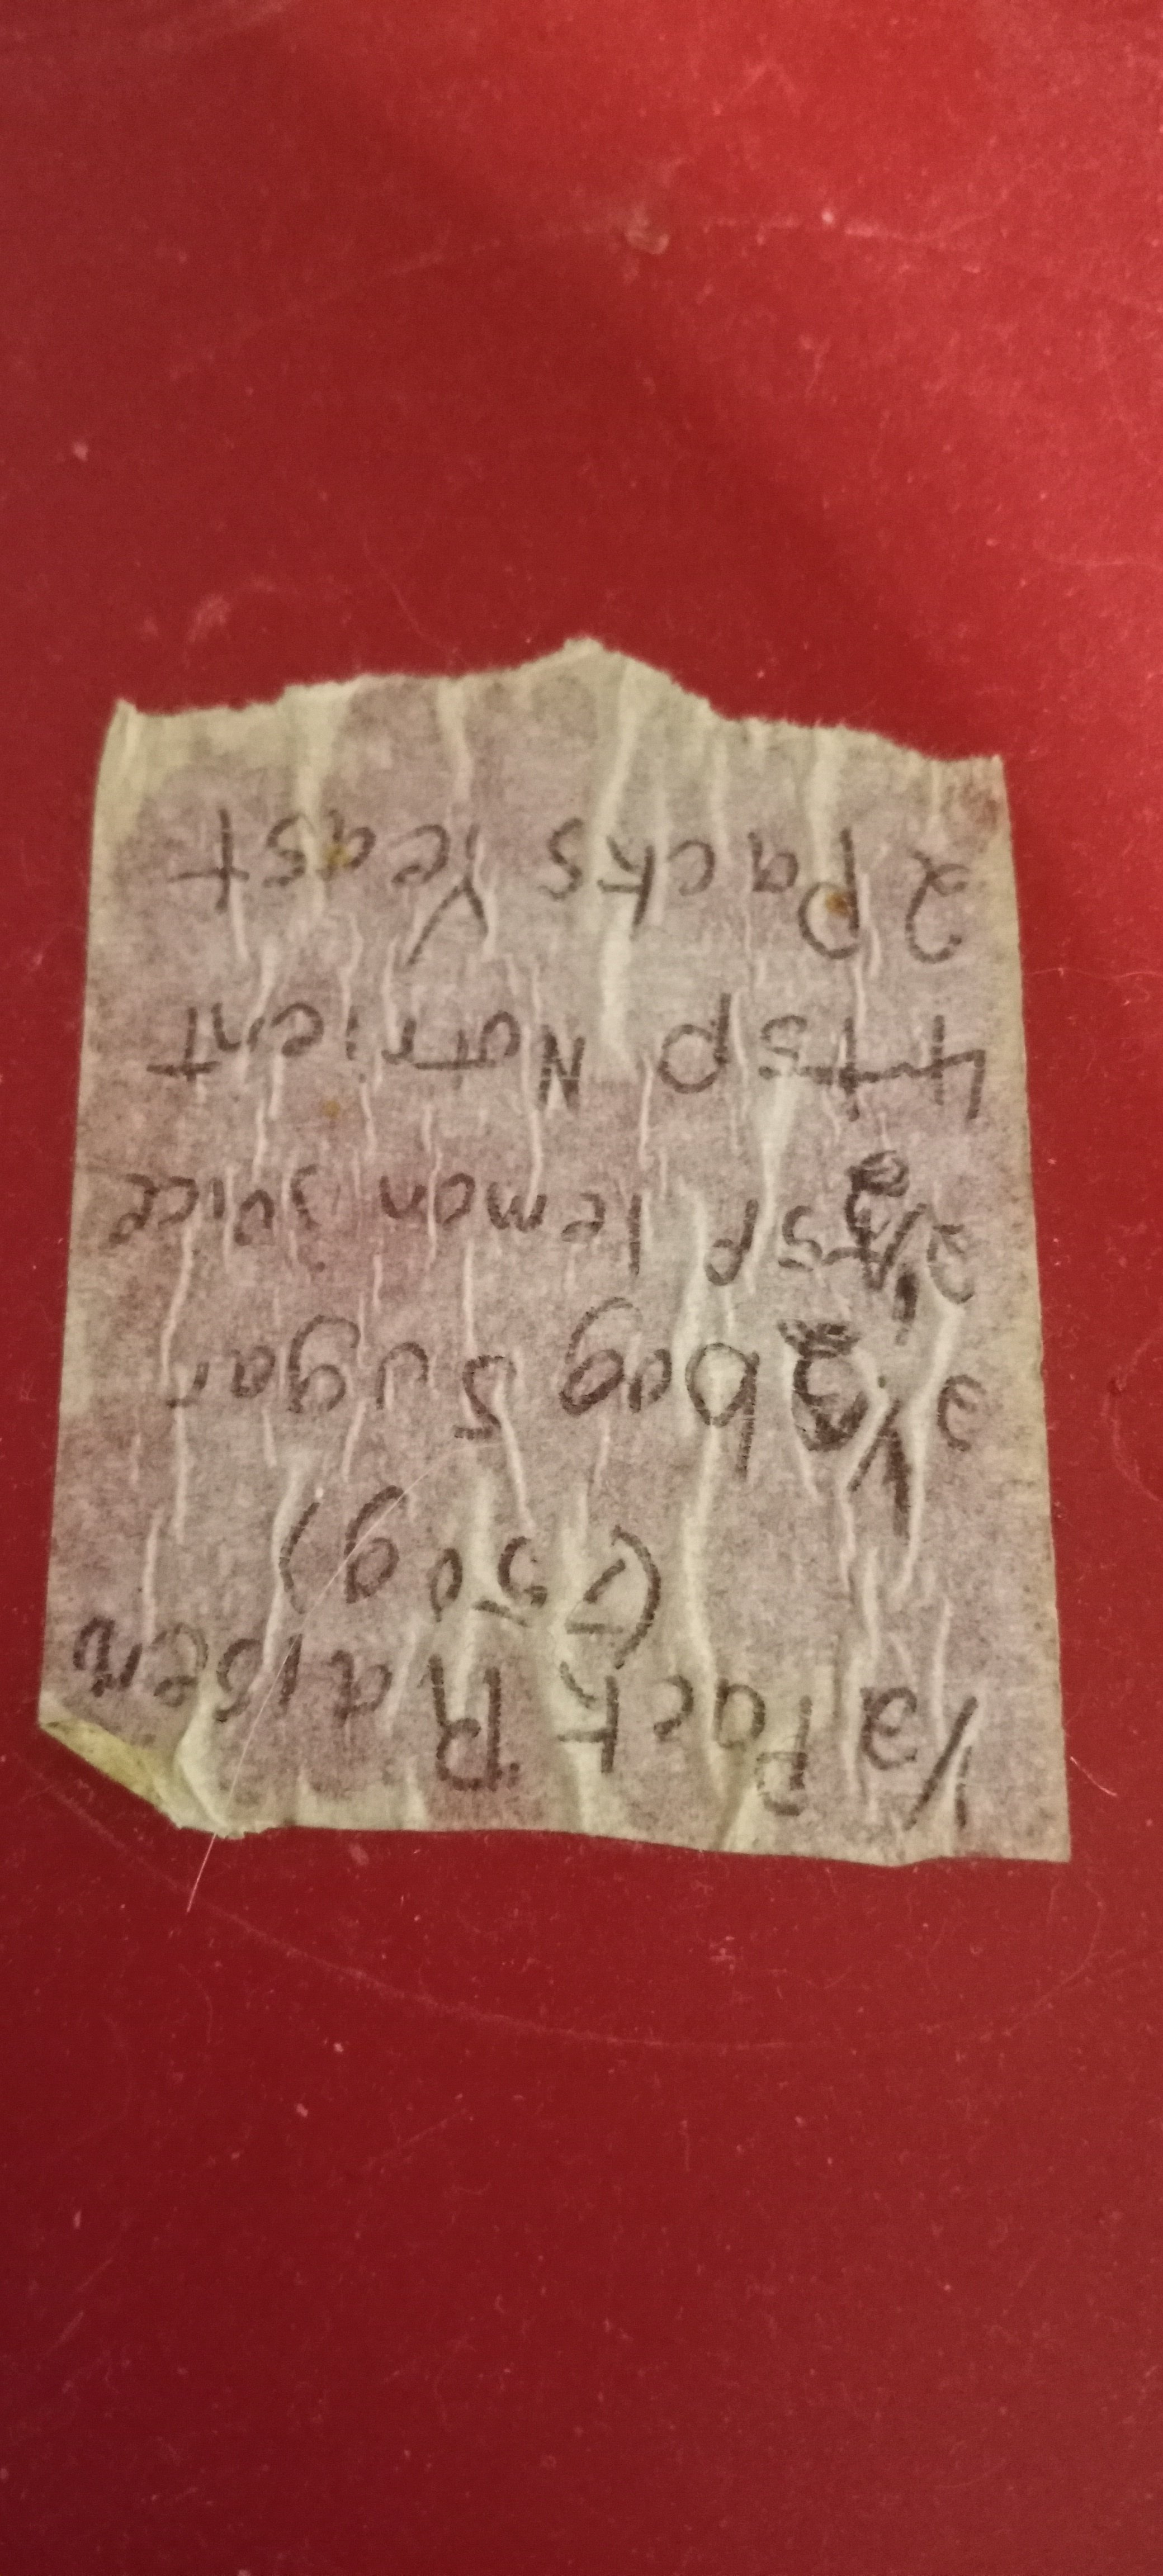 1/3 Pack Raisen
(150g)
3 1/2 bag Sugar
2 1/2 tsp lemon juice
4 tsp Nutrient
2 Packs Yeast